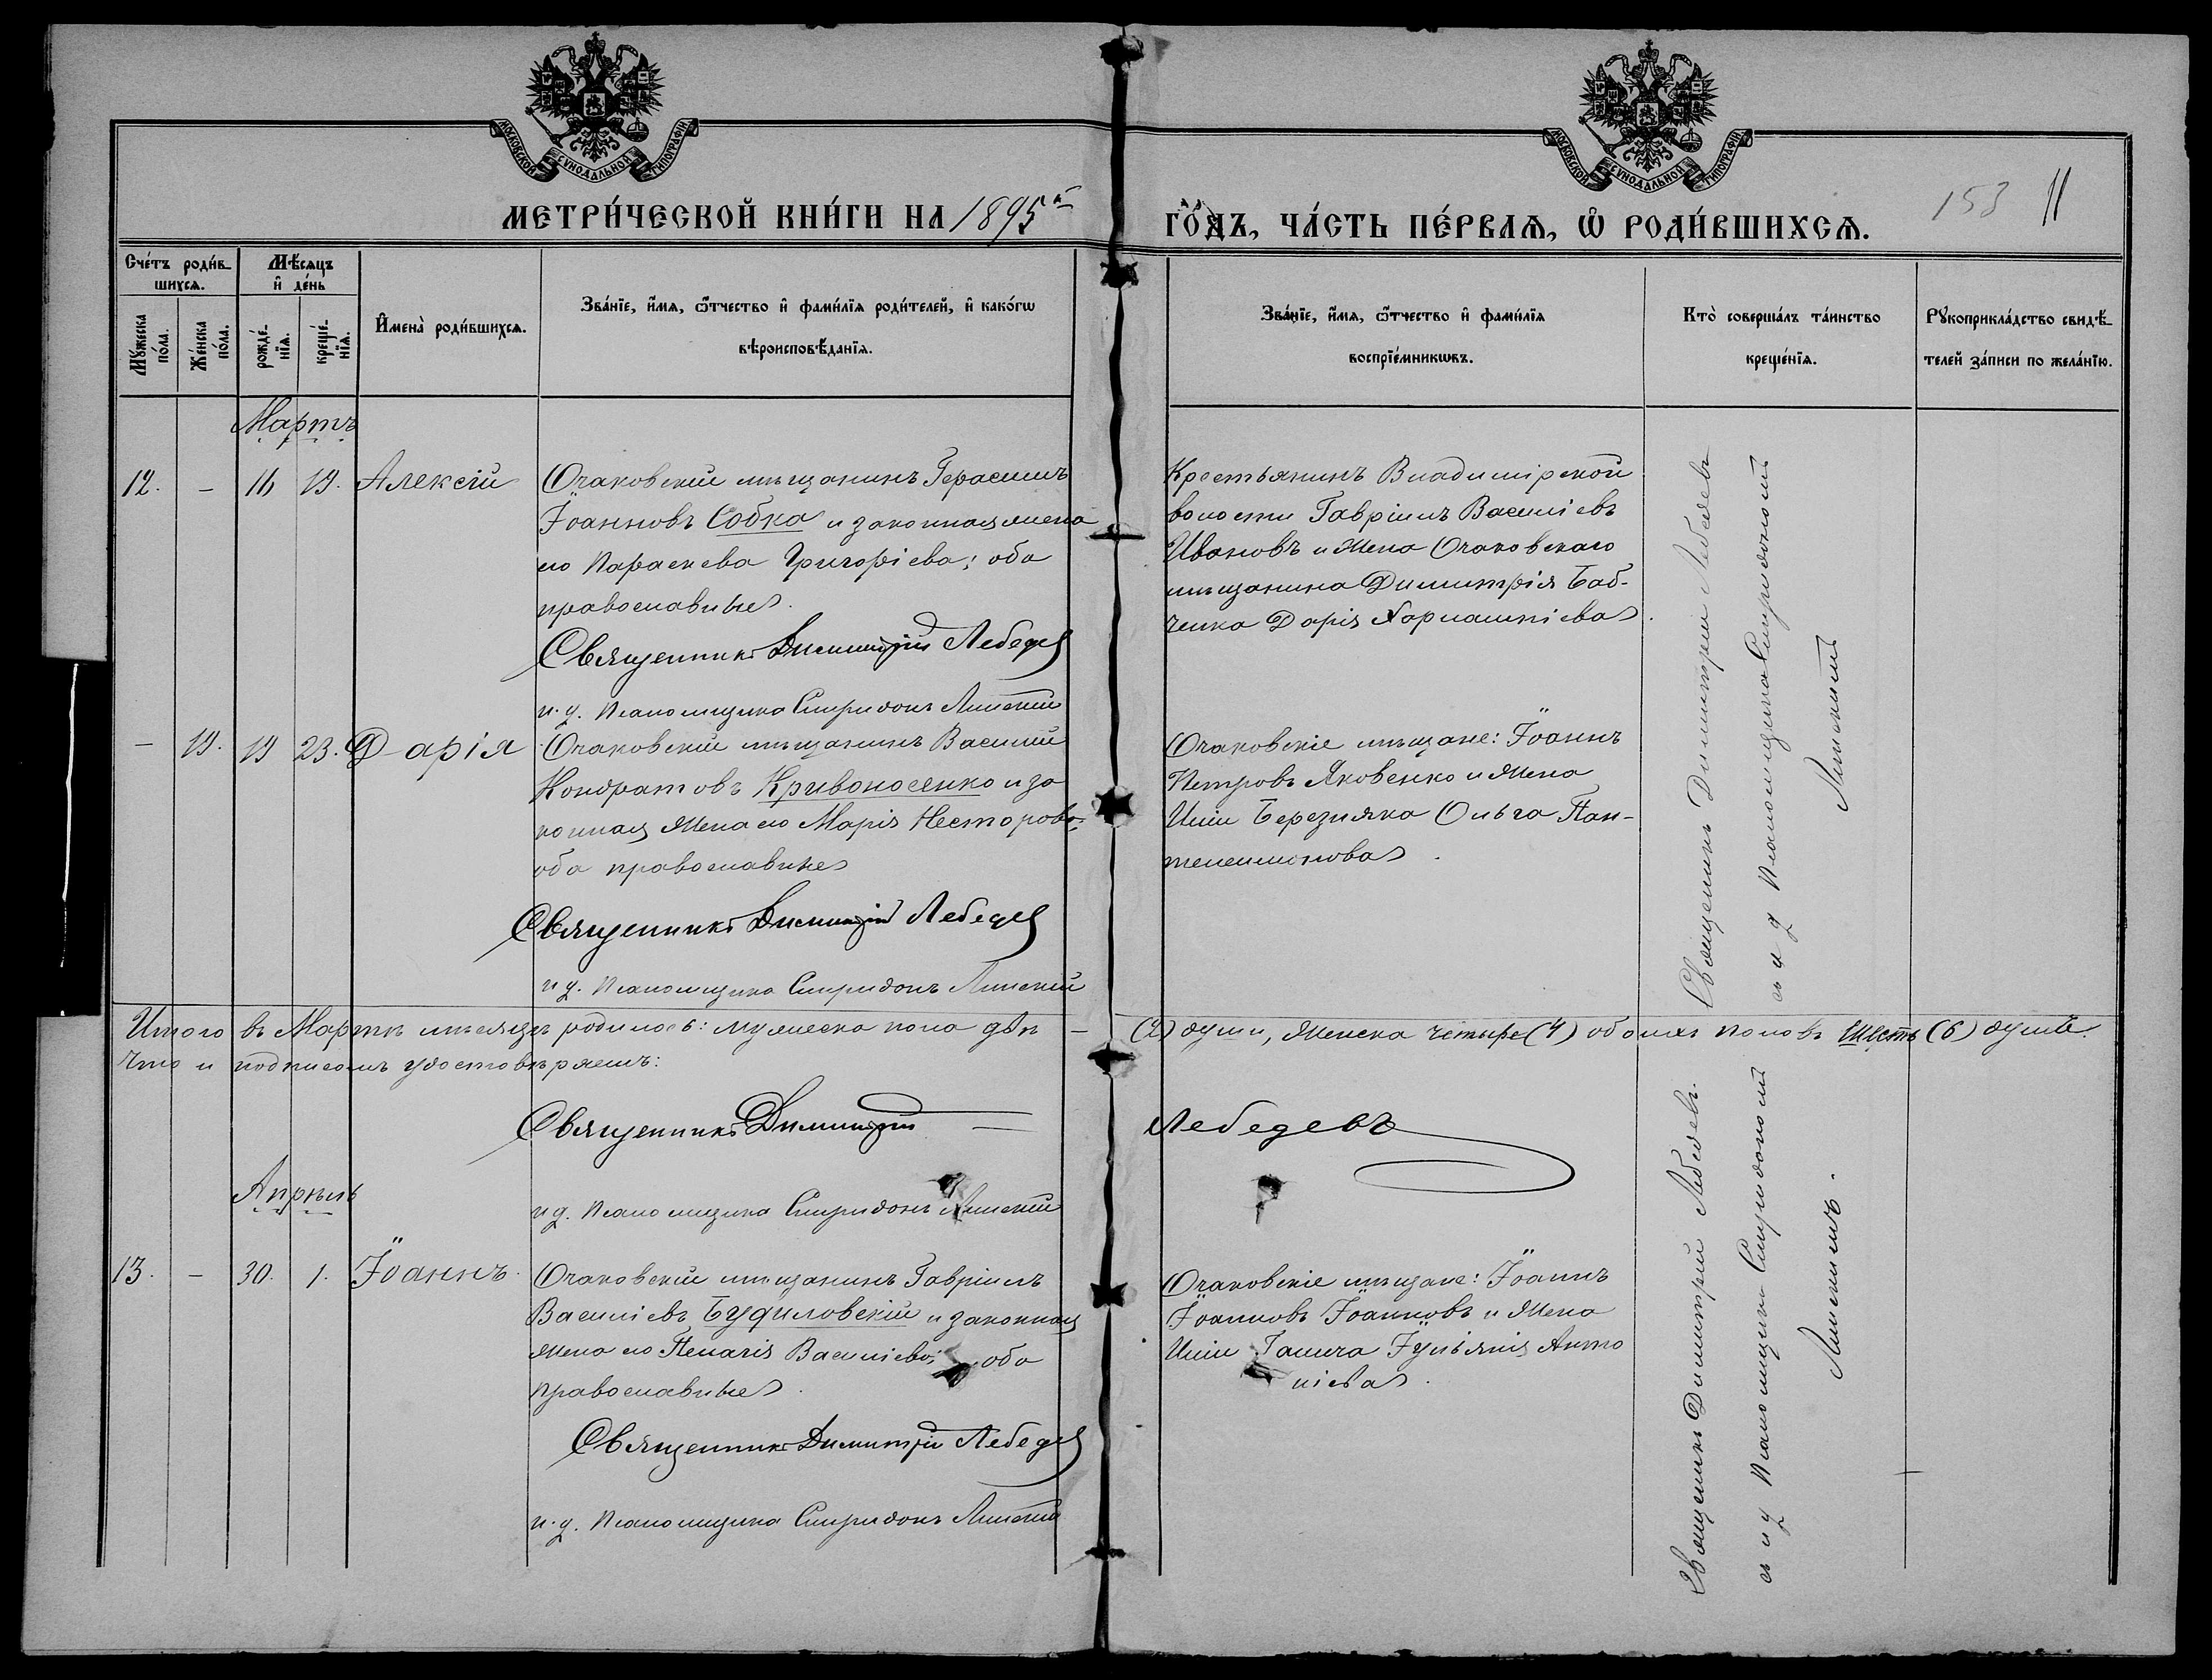 МОСКОВСКОЙ СѴНОДАЛЬНОЙ ТИПОГРАФІИ
МОСКОВСКОЙ СѴНОДАЛЬНОЙ ТИПОГРАФІИ
МЕТРИ́ЧЕСКОЙ КНИ́ГИ НА 1895й
ГО́ДЪ, ЧА́СТЬ ПЕ́РВАѦ, Ѡ҆ РОДИ́ВШИХСѦ.
153 11
Сче́тъ роди́в-
шихсѧ.
Мꙋ́жеска по́ла.
Же́нска по́ла.
Мѣ́сѧцъ
и҆ де́нь
рожде́-
нїѧ.
креще́-
нїѧ.
И҆мена̀ роди́вшихсѧ.
Зва́нїе, и҆́мѧ, ѻ҆́тчество и҆ фами́лїѧ роди́телей, и҆ како́гѡ
вѣроисповѣ́данїѧ.
Зва́нїе, и҆́мѧ, ѻ҆́тчество и҆ фами́лїѧ
воспрїе́мникѡвъ.
Кто̀ соверша́лъ та́инство
креще́нїѧ.
Рꙋкоприкла́дство свидѣ́-
телей за́писи по жела́нїю.
Мартъ
12. – 16 19. Алексій
Очаковскій мѣщанинъ Герасимъ
Іоанновъ Собка и законная жена
его Параскева Григоріева; оба
православные.
Священникъ Димитрій Лебедев
и. д. Псаломщика Спиридонъ Линскій
Крестьянинъ Владимірской
волости Гавріилъ Василіевъ
Ивановъ и жена Очаковскаго
мѣщанина Димитрія Баб-
ченка Дарія Харлампіева.
Священникъ Димитрій Лебедевъ
съ и д Псаломщика Спиридономъ
Линскимъ
– 19. 19 23. Дарія
Очаковскій мѣщанинъ Василій
Кондратовъ Кривоносенко и за
конная жена его Марія Несторова;
оба православные
Священникъ Димитрій Лебедев
и д. Псаломщика Спиридонъ Линскій
Очаковскіе мѣщане: Іоаннъ
Петровъ Яковенко и жена
Иліи Березняка Ольга Пан-
телеимонова.
Итого въ Мартѣ мѣсяцѣ родилось: мужеска пола двѣ – (2) души, женска четыре (4) обоихъ половъ шесть (6) душъ.
Что и подписомъ удостовѣряемъ:
Священникъ Димитрій – Лебедевъ
и д. Псаломщика Спиридонъ Линскій
Апрѣль
13. – 30. 1. Іоаннъ.
Очаковскій мѣщанинъ Гавріилъ
Василіевъ Будиловскій и законная
жена его Пелагія Василіева; оба
православные.
Священникъ Димитрій Лебедев
и. д. Псаломщика Спиридонъ Линскій
Очаковскіе мѣщане: Іоаннъ
Іоанновъ Іоанновъ и жена
Иліи Іуліанія Анто
ніева.
Священникъ Димитрій Лебедевъ.
съ и д Псаломщика Спиридономъ
Линскимъ.